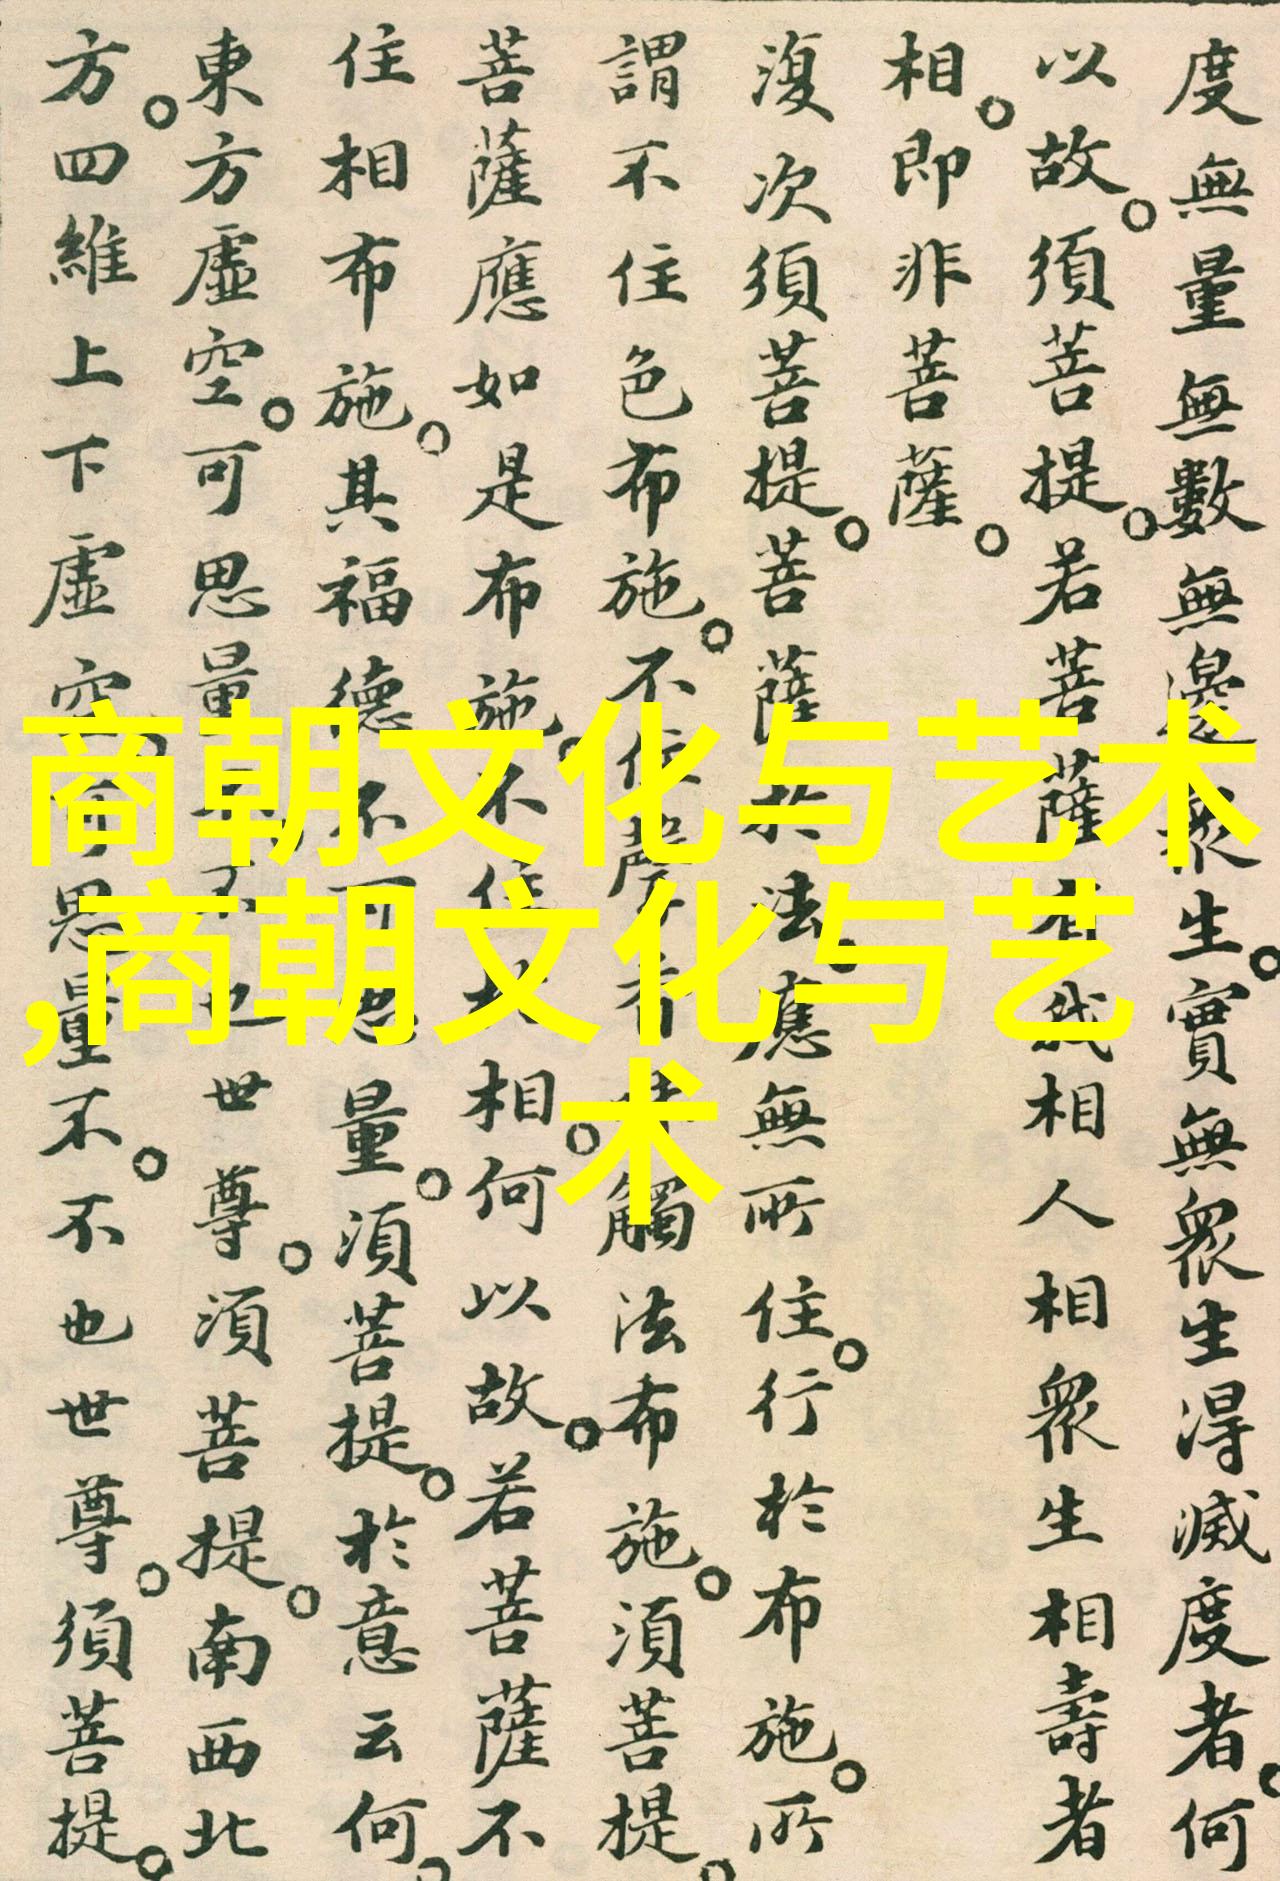 度無量無數無邊眾生。實無眾生得滅度者。何
以故。須菩提。若菩薩有我相人相眾生相壽者
相。即非菩薩。
復次須菩提。菩薩於法。應無所住。行於布施。所
謂不住色布施。不住聲香味觸法布施。須菩提。
菩薩應如是布施。不住於相。何以故。若菩薩不
住相布施。其福德不可思量。須菩提。於意云何。
東方虛空。可思量不。不也世尊。須菩提。南西北
方。四維上下虛空。可思量不。不也世尊。須菩提。
商朝文化与艺术
,商朝文化与艺
术